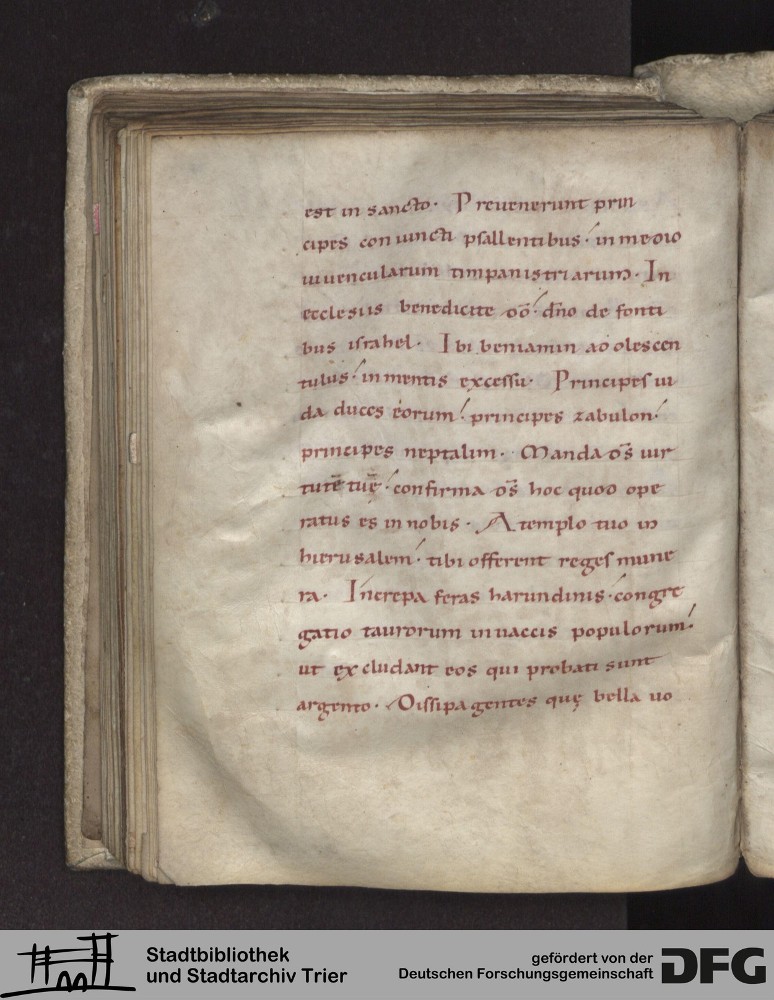 est in sancto. Prevenerunt prin
cipes coniuncti psallentibus. in medio
iuvencularum timpanistriarum. In
ecclesiis benedicite dō. dño de fonti
bus israhel. Ibi beniamin adolescen
tulus. in mentis excessu. Principes iu
da duces eorum. principes zabulon.
principes neptalim. Manda d̄s vir
tutē tuę̄. confirma d̄s hoc quod ope
ratus es in nobis. A templo tuo in
hierusalem. tibi offerent reges mune
ra. Increpa feras harundinis. congre
gatio taurorum in vaccis populorum.
ut excludant eos qui probati sunt
argento. Dissipa gentes quę bella vo
Stadtbibliothek
und Stadtarchiv Trier
gefördert von der
Deutschen Forschungsgemeinschaft
DFG